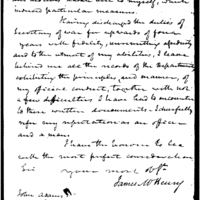 Having discharged the duties of
Secretary of War for upwards of four
years with fidelity, unremitting assiduity
and to the utmost of my abilities, I leave
behind me all the records of the Department
exhibiting the principles, and manner, of
my official conduct, together with not
a few difficulties I have had to encounter
to these written documents I cheerfully
refer my reputation as an officer
and a man.
I have the honour to be
with the most perfect consideration
Sir
your most
James McHenry
John Adams